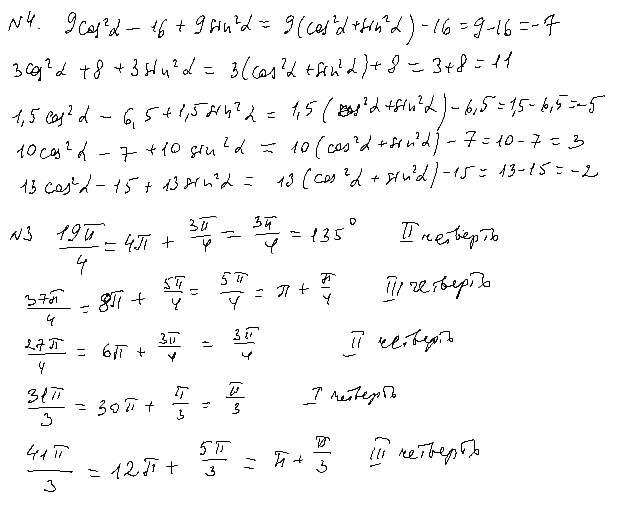 №4. 9cos²α − 16 + 9sin²α = 9(cos²α+sin²α) − 16 = 9−16 = −7
3cos²α + 8 + 3sin²α = 3(cos²α + sin²α) + 8 = 3+8 = 11
1,5cos²α − 6,5 + 1,5sin²α = 1,5(cos²α+sin²α) − 6,5 = 1,5−6,5 = −5
10cos²α − 7 + 10 sin²α = 10(cos²α + sin²α) − 7 = 10 − 7 = 3
13cos²α − 15 + 13sin²α = 13(cos²α + sin²α) − 15 = 13−15 = −2
№3 19π/4 = 4π + 3π/4 = 3π/4 = 135° II четверть
37π/4 = 8π + 5π/4 = 5π/4 = π + π/4 III четверть
27π/4 = 6π + 3π/4 = 3π/4 II четверть
31π/3 = 30π + π/3 = π/3 I четверть
41π/3 = 12π + 5π/3 = π + π/3 III четверть